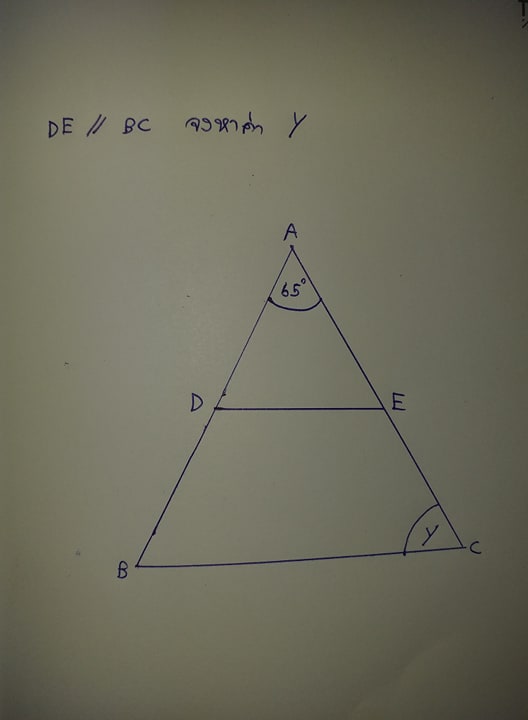 DE // BC จงหาค่า Y
A
65°
D E
Y
B C